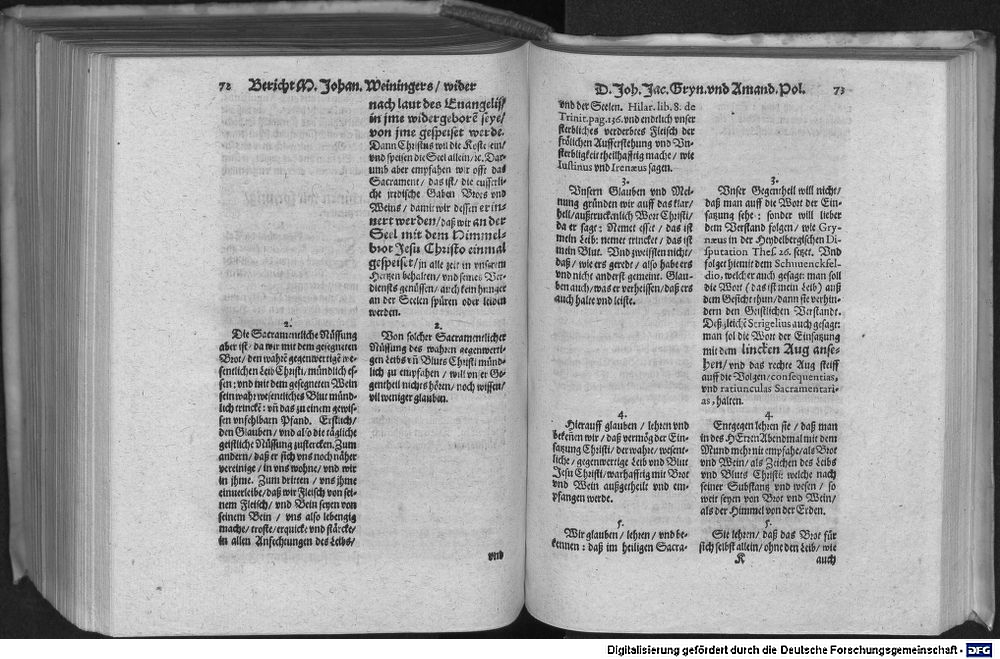 72 Bericht M. Johan. Weiningers / wider
nach laut des Euangelij/
in jme widergeborē seye/
von jme gespeiset werde.
Dann Christus wil die Keste ein/
vnd speisen die Seel allein/ ꝛc. Dar-
umb aber empfahen wir offt das
Sacrament/ das ist/ die eusserli-
che jrdische Gaben Brots vnd
Weins/ damit wir dessen erin-
nert werden/ daß wir an der
Seel mit dem Himmel-
brot Jesu Christo einmal
gespeiset/ in alle zeit in vnserem
Hertzen behalten/ vnd seines Ver-
diensts geniessen/ auch kein hunger
an der Seelen spüren oder leiden
werden.
2.
Die Sacramentliche Nüssung
aber ist/ da wir mit dem gesegneten
Brot/ den wahrē gegenwertigē we-
sentlichen Leib Christi/ mündlich es-
sen: vnd mit dem gesegneten Wein
sein wahr wesentliches Blut münd-
lich trinckē: vñ das zu einem gewis-
sen vnfehlbarn Pfand. Erstlich/
den Glauben/ vnd also die tägliche
geistliche Nüssung zustercken. Zum
andern/ daß er sich vns noch näher
vereinige/ in vns wohne/ vnd wir
in jhme. Zum dritten/ vns jhme
einuerleibe/ daß wir Fleisch von sei-
nem Fleisch/ vnd Bein seyen von
seinem Bein/ vns also lebengig
mache/ troste/ erquicke vnd stärcke/
in allen Anfechtungen des Leibs/
2.
Von solcher Sacramentlicher
Nüssung des wahren gegenwerti-
gen Leibs vñ Bluts Christi münd-
lich zu empfahen/ will vnser Ge-
gentheil nichts hören/ noch wissen/
vil weniger glauben.
vnd
D. Joh. Jac. Gryn. vnd Amand. Pol. 73
vnd der Seelen. Hilar. lib. 8. de
Trinit. pag. 136. vnd endlich vnser
sterbliches verderbtes Fleisch der
frölichen Aufferstehung vnd Vn-
sterbligkeit theilhafftig mache/ wie
Iustinus vnd Irenæus sagen.
3.
Vnsern Glauben vnd Mei-
nung gründen wir auff das klar/
hell/ außtruckenlich Wort Christi/
da er sagt: Nemet esset/ das ist
mein Leib: nemet trincket/ das ist
mein Blut. Vnd zweifflen nicht/
daß/ wie ers geredt/ also habe ers
vnd nicht anderst gemeint. Glau-
ben auch/ was er verheissen/ daß ers
auch halte vnd leiste.
3.
Vnser Gegentheil will nicht/
daß man auff die Wort der Ein-
satzung sehe: sonder will lieber
dem Verstand folgen/ wie Gry-
næus in der Heydelbergischen Di-
sputation Thes. 26. setzet. Vnd
folget hiemit dem Schuuenckfel-
dio, welcher auch gesagt: man soll
die Wort (das ist mein Leib) auß
dem Gesicht thun/ dann sie verhin-
dern den Geistlichen Verstandt.
Deßgleichē Serigelius auch gesagt:
man sol die Wort der Einsatzung
mit dem lincken Aug anse-
hen/ vnd das rechte Aug steiff
auff die Volgen/ consequentias,
vnd ratiunculas Sacramentari-
as, halten.
4.
Hierauff glauben/ lehren vnd
bekeñen wir/ daß vermög der Ein-
satzung Christi/ der wahre/ wesent-
liche/ gegenwertige Leib vnd Blut
Jesu Christi/ warhafftig mit Brot
vnd Wein außgetheilt vnd em-
pfangen werde.
4.
Entgegen lehren sie/ daß man
in des HErren Abendmal mit dem
Mund mehr nit empfahe/ als Brot
vnd Wein/ als Zeichen des Leibs
vnd Bluts Christi: welche nach
seiner Substantz vnd wesen/ so
weit seyen von Brot vnd Wein/
als der Himmel von der Erden.
5.
Wir glauben/ lehren/ vnd be-
kennen: daß im heiligen Sacra-
5.
Sie lehren/ daß das Brot für
sich selbst allein/ ohne den Leib/ wie
K auch
Digitalisierung gefördert durch die Deutsche Forschungsgemeinschaft - DFG